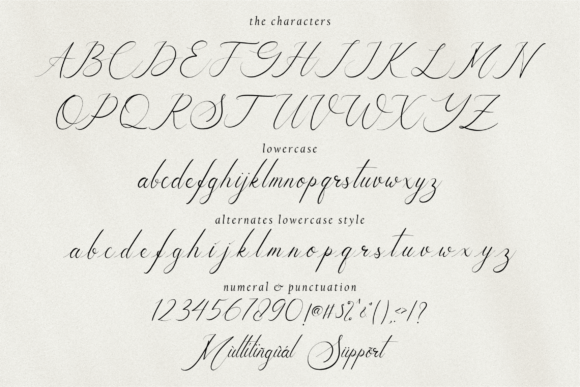 the characters
ABCDEFGHIJKLMN
OPQRSTUVWXYZ
lowercase
abcdefghijklmnopqrstuvwxyz
alternates lowercase style
abcdefghijklmnopqrstuvwxyz
numeral & punctuation
1234567890
Múltilingüál Süppört